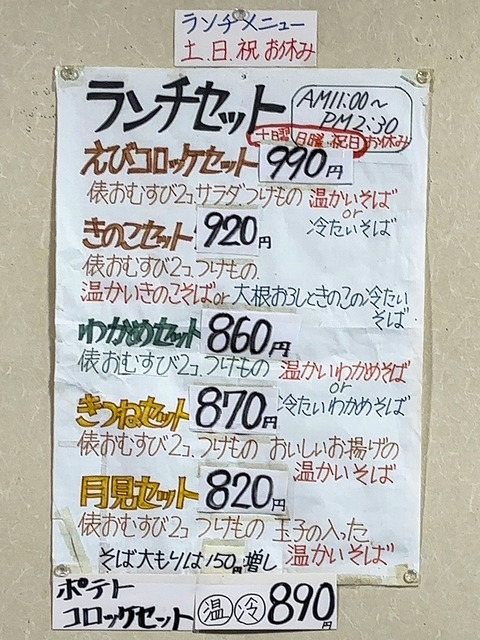 ランチメニュー
土.日.祝お休み
ランチセット
AM11:00〜
PM2:30
土曜 日曜.祝日お休み
えびコロッケセット 990円
俵おむすび2コ.サラダ.つけもの 温かいそば
or
冷たいそば
きのこセット 920円
俵おむすび2コ.つけもの.
温かいきのこそばor大根おろしときのこの冷たい
そば
わかめセット 860円
俵おむすび2コ.つけもの 温かいわかめそば
or
きつねセット 870円 冷たいわかめそば
俵おむすび2コ.つけもの おいしいお揚げの
温かいそば
月見セット 820円
俵おむすび2コ つけもの 玉子の入った
そば大もりは150円増し 温かいそば
ポテト
コロッケセット 温 冷 890円